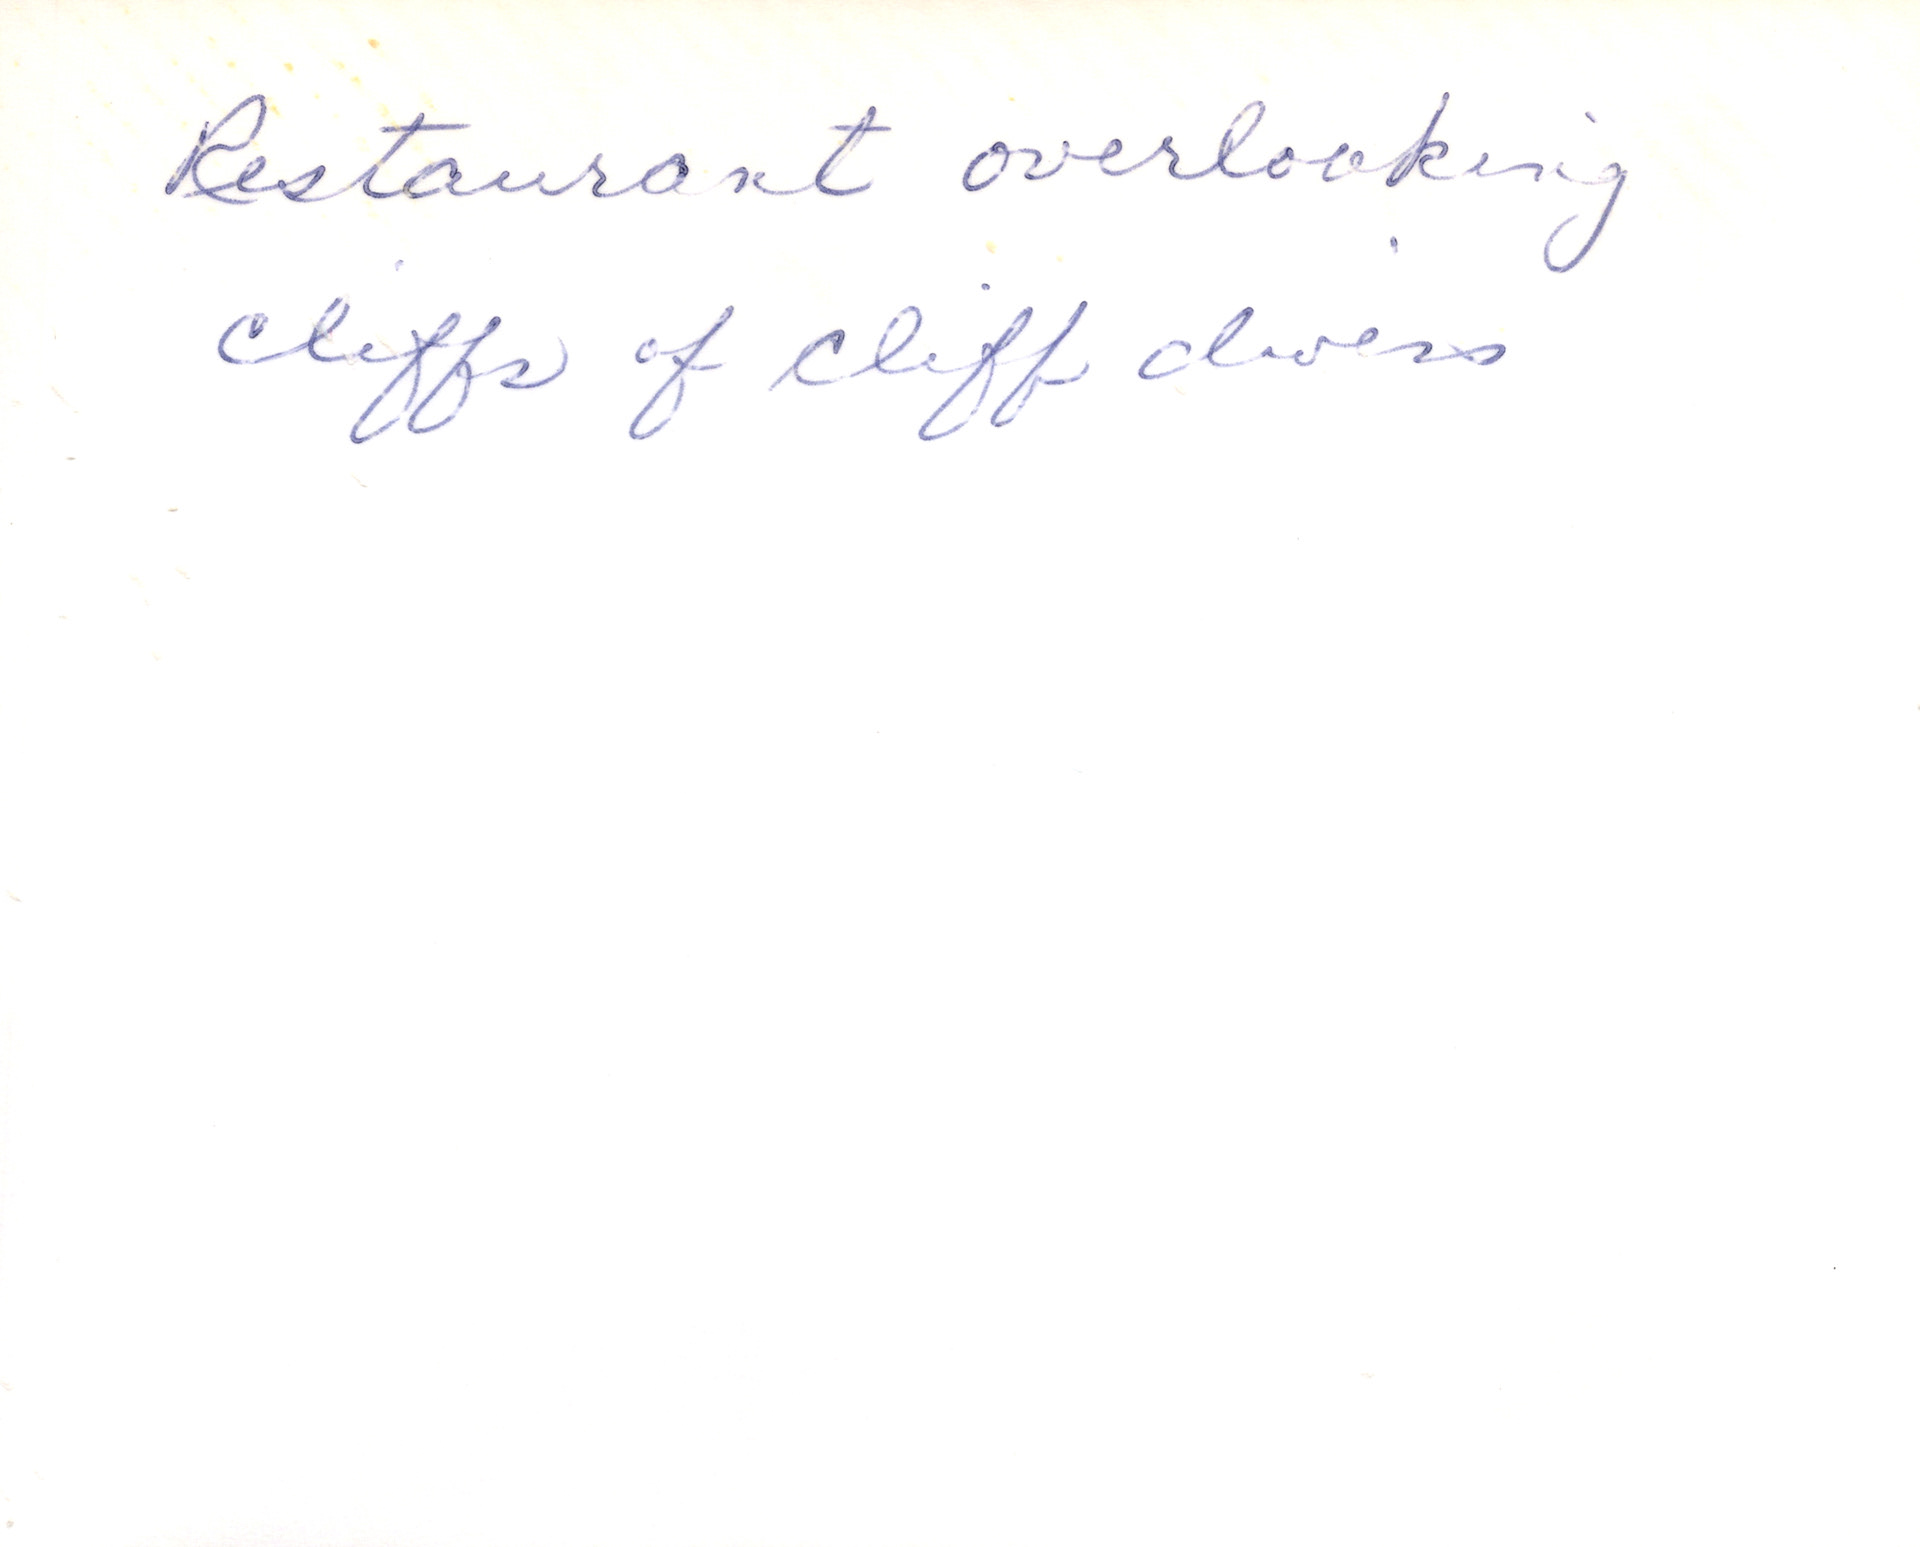 Restaurant overlooking
cliffs of cliff divers